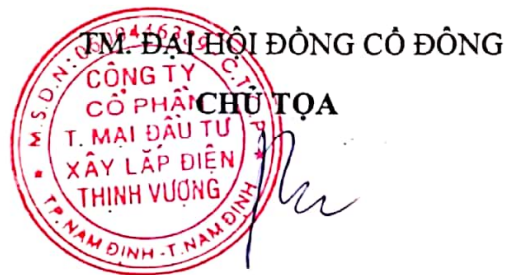 TM. ĐẠI HỘI ĐỒNG CỔ ĐÔNG
CHỦ TỌA
CÔNG TY
CỔ PHẦN
T. MẠI ĐẦU TƯ
XÂY LẮP ĐIỆN
THỊNH VƯỢNG
M.S.D.N: C.T.C.P
TP. NAM ĐỊNH - T. NAM ĐỊNH